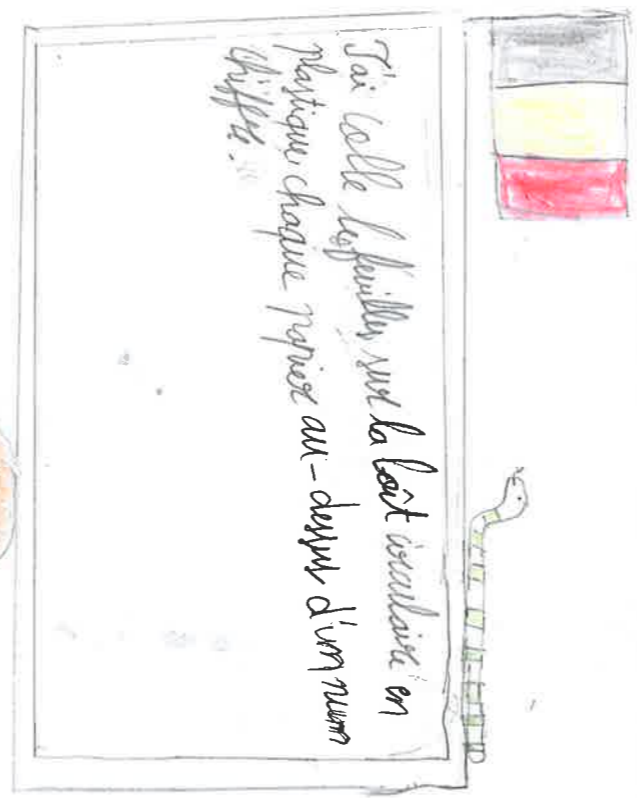 J'ai collé les feuilles sur la boît circulaire en
plastique chaque papier au-dessus d'un num
chiffre.